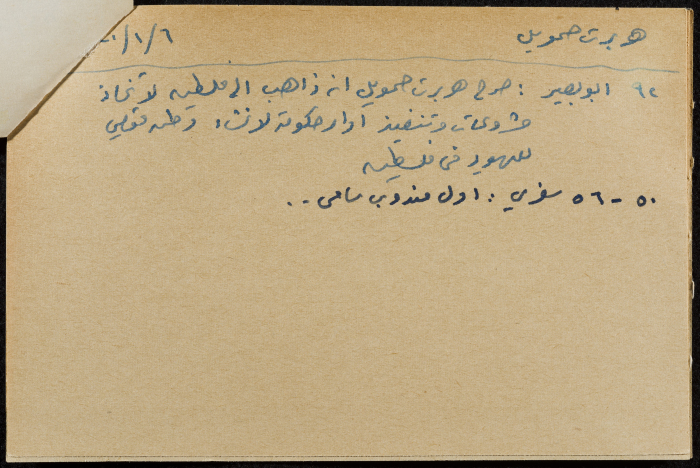 هربرت صموئيل
٦/١/
٩٢ ابو بصير : صرح هربرت صموئيل انه ذاهب الى فلسطين لاتخاذ
مشروعات وتنفيذ اوامر حكومة لانشاء وطن قومي
لليهود في فلسطين
٥٠ - ٥٦ سفري : اول مندوب سامي ..